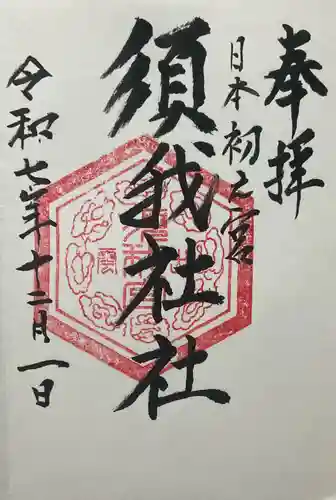 奉拝
日本初之宮
須我社社
令和七年十二月一日